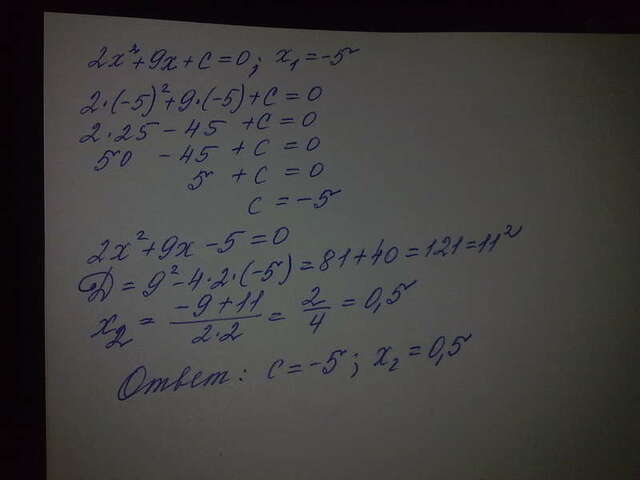 2x²+9x+c=0; x₁=-5
2·(-5)²+9·(-5)+c=0
2·25-45+c=0
50-45+c=0
5+c=0
c=-5
2x²+9x-5=0
D=9²-4·2·(-5)=81+40=121=11²
x₂=(-9+11)/(2·2)=2/4=0,5
Ответ: c=-5; x₂=0,5